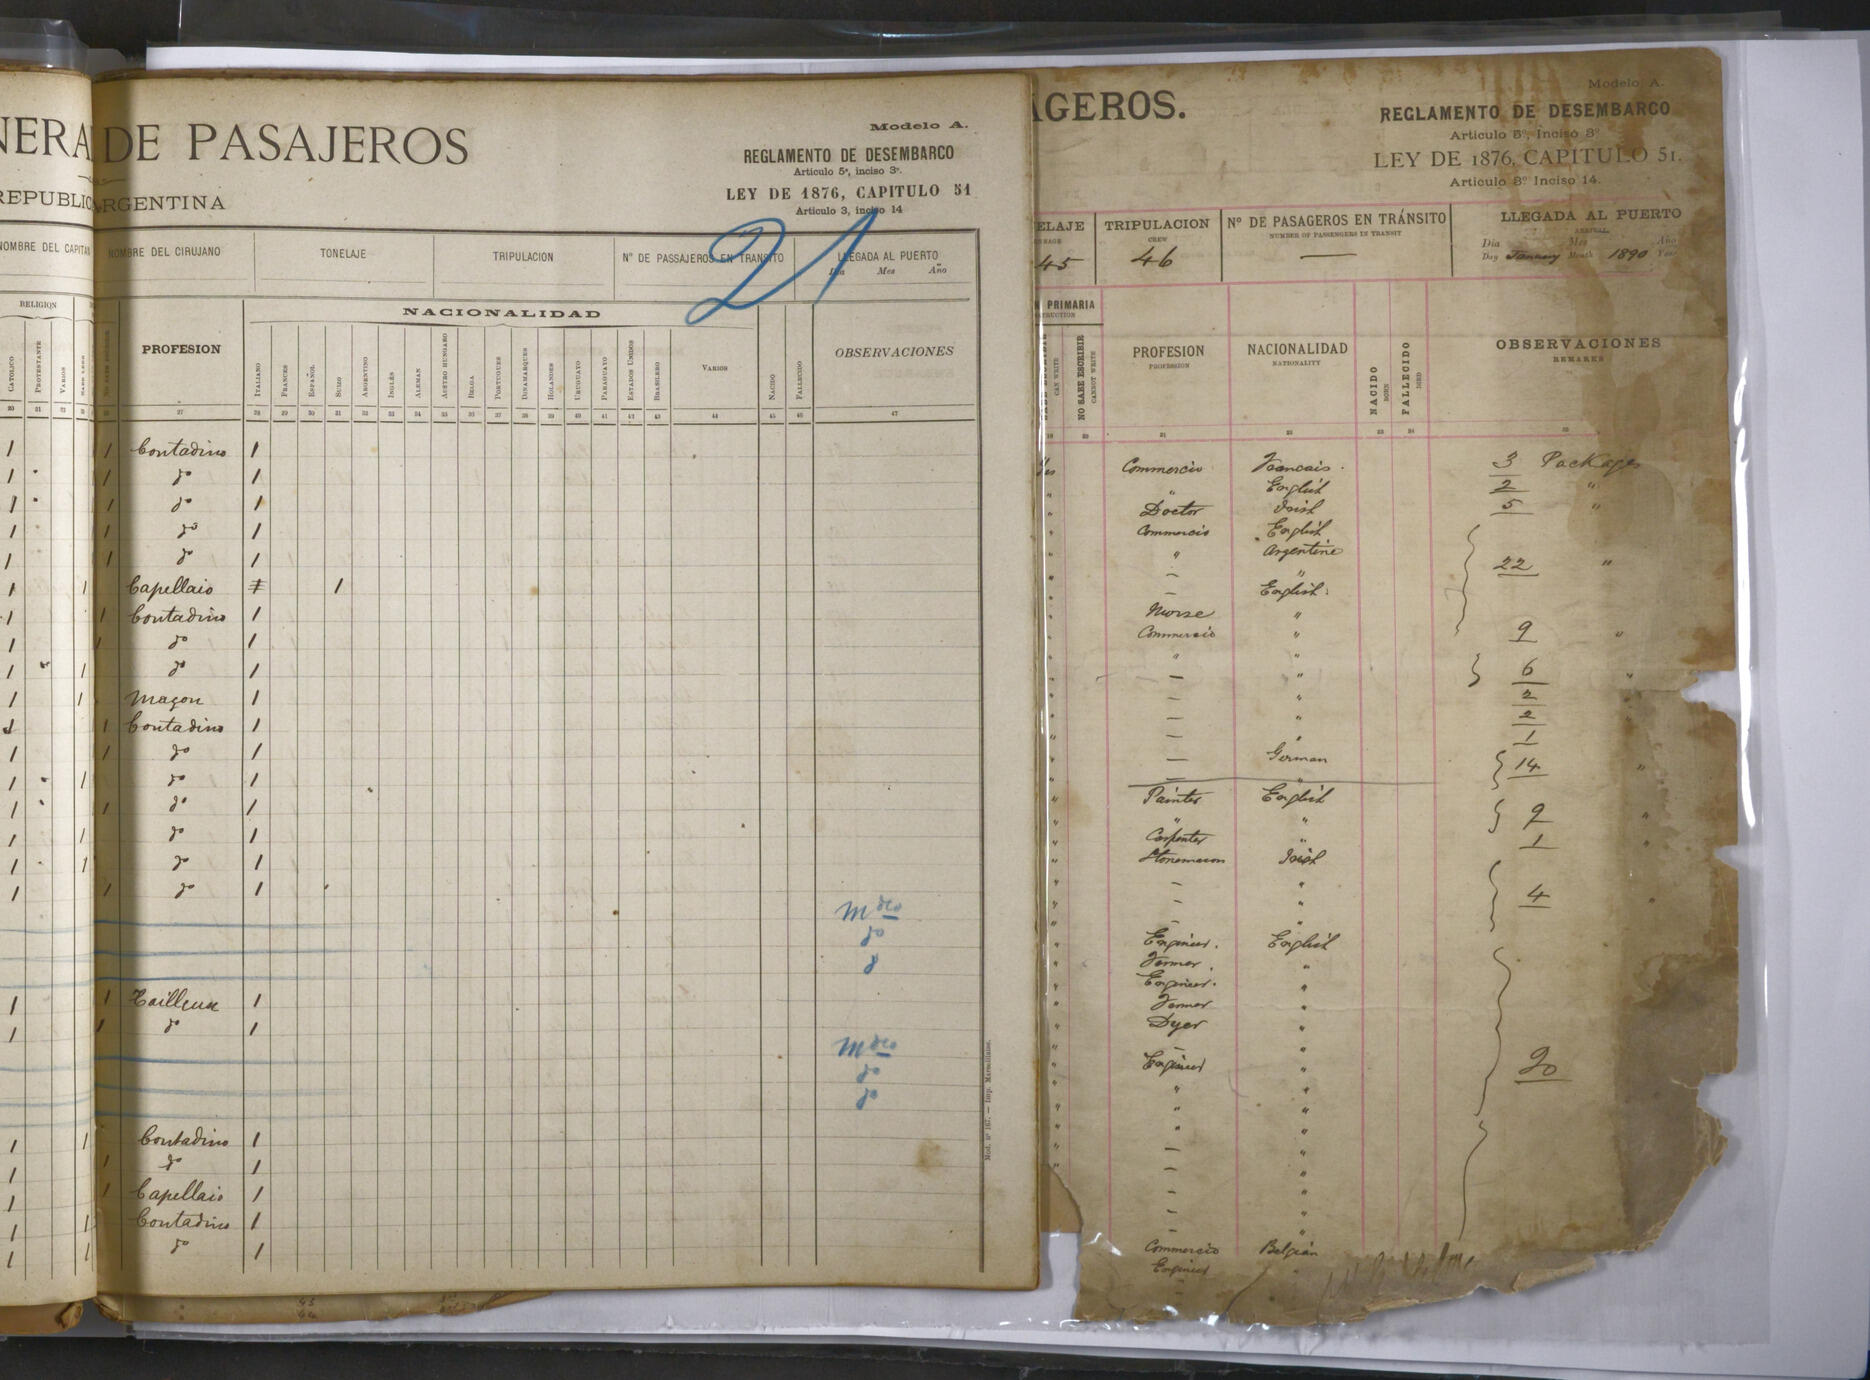 NERA DE PASAJEROS
REPUBLICA ARGENTINA
Modelo A.
REGLAMENTO DE DESEMBARCO
Articulo 5º, inciso 3º.
LEY DE 1876, CAPITULO 51
Articulo 3, inciso 14
21
NOMBRE DEL CAPITAN
NOMBRE DEL CIRUJANO
TONELAJE
TRIPULACION
Nº DE PASSAJEROS EN TRANSITO
LLEGADA AL PUERTO
Dia Mes Año
RELIGION
NACIONALIDAD
CATOLICO PROTESTANTE VARIOS
PROFESION
ITALIANO FRANCES ESPAÑOL SUIZO ARGENTINO INGLÉS ALEMAN AUSTRO HUNGARO BELGA PORTUGUES DINAMARQUES HOLANDES URUGUAYO PARAGUAYO ESTADOS UNIDOS BRASILERO VARIOS NACIDO FALLECIDO
OBSERVACIONES
20 21 22 27 28 29 30 31 32 33 34 35 36 37 38 39 40 41 42 43 44 45 46 47
1 1 Contadino 1
1 1 do 1
1 1 do 1
1 1 do 1
1 1 do 1
1 1 Capellaio 1
1 1 Contadino 1
1 1 do 1
1 1 do 1
1 1 Maçon 1
1 1 Contadino 1
1 1 do 1
1 1 do 1
1 1 do 1
1 1 do 1
1 1 do 1
1 1 do 1
do
1 1 Tailleur 1
1 1 do 1
do
do
1 1 Contadino 1
1 1 do 1
1 1 Capellaio 1
1 1 Contadino 1
1 1 do 1
Mod. nº 167. — Imp. Marseillaise.
AGEROS.
Modelo A.
REGLAMENTO DE DESEMBARCO
Articulo 5º, Inciso 3º
LEY DE 1876, CAPITULO 51.
Articulo 3º Inciso 14.
ELAJE
TRIPULACION
CREW
Nº DE PASAGEROS EN TRÁNSITO
NUMBER OF PASSENGERS IN TRANSIT
LLEGADA AL PUERTO
ARRIVAL
Dia Mes Año
Day January Month 1890 Year
45 46 —
N PRIMARIA
CAN WRITE
NO SABE ESCRIBIR
CANNOT WRITE
PROFESION
PROFESSION
NACIONALIDAD
NATIONALITY
NACIDO
BORN
FALLECIDO
DIED
OBSERVACIONES
REMARKS
19 20 21 22 23 24 25
Yes Commercio Francais. 3 Packages
" " English 2 "
" Doctor Irish 5 "
" Commercio English
" " Argentine
" — " 22 "
" — English.
" Nurse "
" Commercio " 9 "
" " "
" — " 6 "
" — " 2
" — " 2 "
" — " 1
" — German 14 "
" — "
" Painter English
" " " 9 "
" Carpenter " 1 "
" Stonemason Irish
" — "
" — " 4 "
" — "
" Engineer. English
" Farmer. "
" Engineer. "
" Farmer "
" Dyer "
" — "
" Engineer " 20
" " "
" " "
" " "
" — "
" — "
— "
— "
— "
Commercio Belgian
Engineer